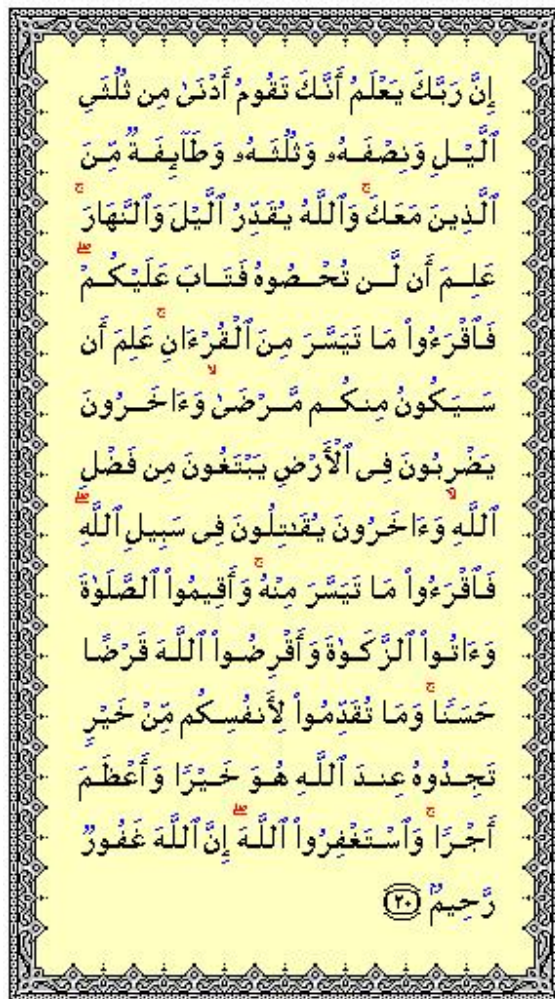 إِنَّ رَبَّكَ يَعْلَمُ أَنَّكَ تَقُومُ أَدْنَىٰ مِن ثُلُثَىِ
ٱلَّيْلِ وَنِصْفَهُۥ وَثُلُثَهُۥ وَطَآئِفَةٌ مِّنَ
ٱلَّذِينَ مَعَكَ ۚ وَٱللَّهُ يُقَدِّرُ ٱلَّيْلَ وَٱلنَّهَارَ ۚ
عَلِمَ أَن لَّن تُحْصُوهُ فَتَابَ عَلَيْكُمْ ۖ
فَٱقْرَءُوا۟ مَا تَيَسَّرَ مِنَ ٱلْقُرْءَانِ ۚ عَلِمَ أَن
سَيَكُونُ مِنكُم مَّرْضَىٰ ۙ وَءَاخَرُونَ
يَضْرِبُونَ فِى ٱلْأَرْضِ يَبْتَغُونَ مِن فَضْلِ
ٱللَّهِ ۙ وَءَاخَرُونَ يُقَـٰتِلُونَ فِى سَبِيلِ ٱللَّهِ ۖ
فَٱقْرَءُوا۟ مَا تَيَسَّرَ مِنْهُ ۚ وَأَقِيمُوا۟ ٱلصَّلَوٰةَ
وَءَاتُوا۟ ٱلزَّكَوٰةَ وَأَقْرِضُوا۟ ٱللَّهَ قَرْضًا
حَسَنًا ۚ وَمَا تُقَدِّمُوا۟ لِأَنفُسِكُم مِّنْ خَيْرٍ
تَجِدُوهُ عِندَ ٱللَّهِ هُوَ خَيْرًا وَأَعْظَمَ
أَجْرًا ۚ وَٱسْتَغْفِرُوا۟ ٱللَّهَ ۖ إِنَّ ٱللَّهَ غَفُورٌ
رَّحِيمٌ ٢٠